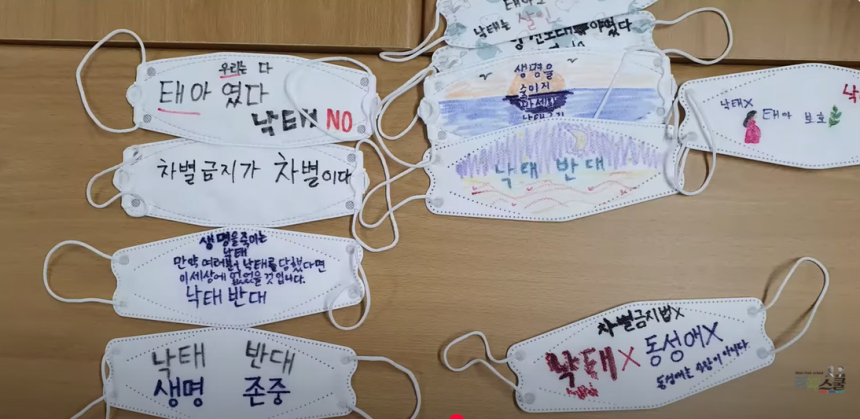 우리는 다
태아 였다
낙태 NO
차별금지가 차별이다
생명을죽이는
낙태
만약 여러분이 낙태를 당했다면
이세상에 없었을 것 입니다.
낙태 반대
낙태 반대
생명 존중
낙태는
생명을
죽이지
마세요
낙태 반대
낙태X
태아 보호
차별금지법X
낙태X 동성애X
동성애는 사랑이 아니다